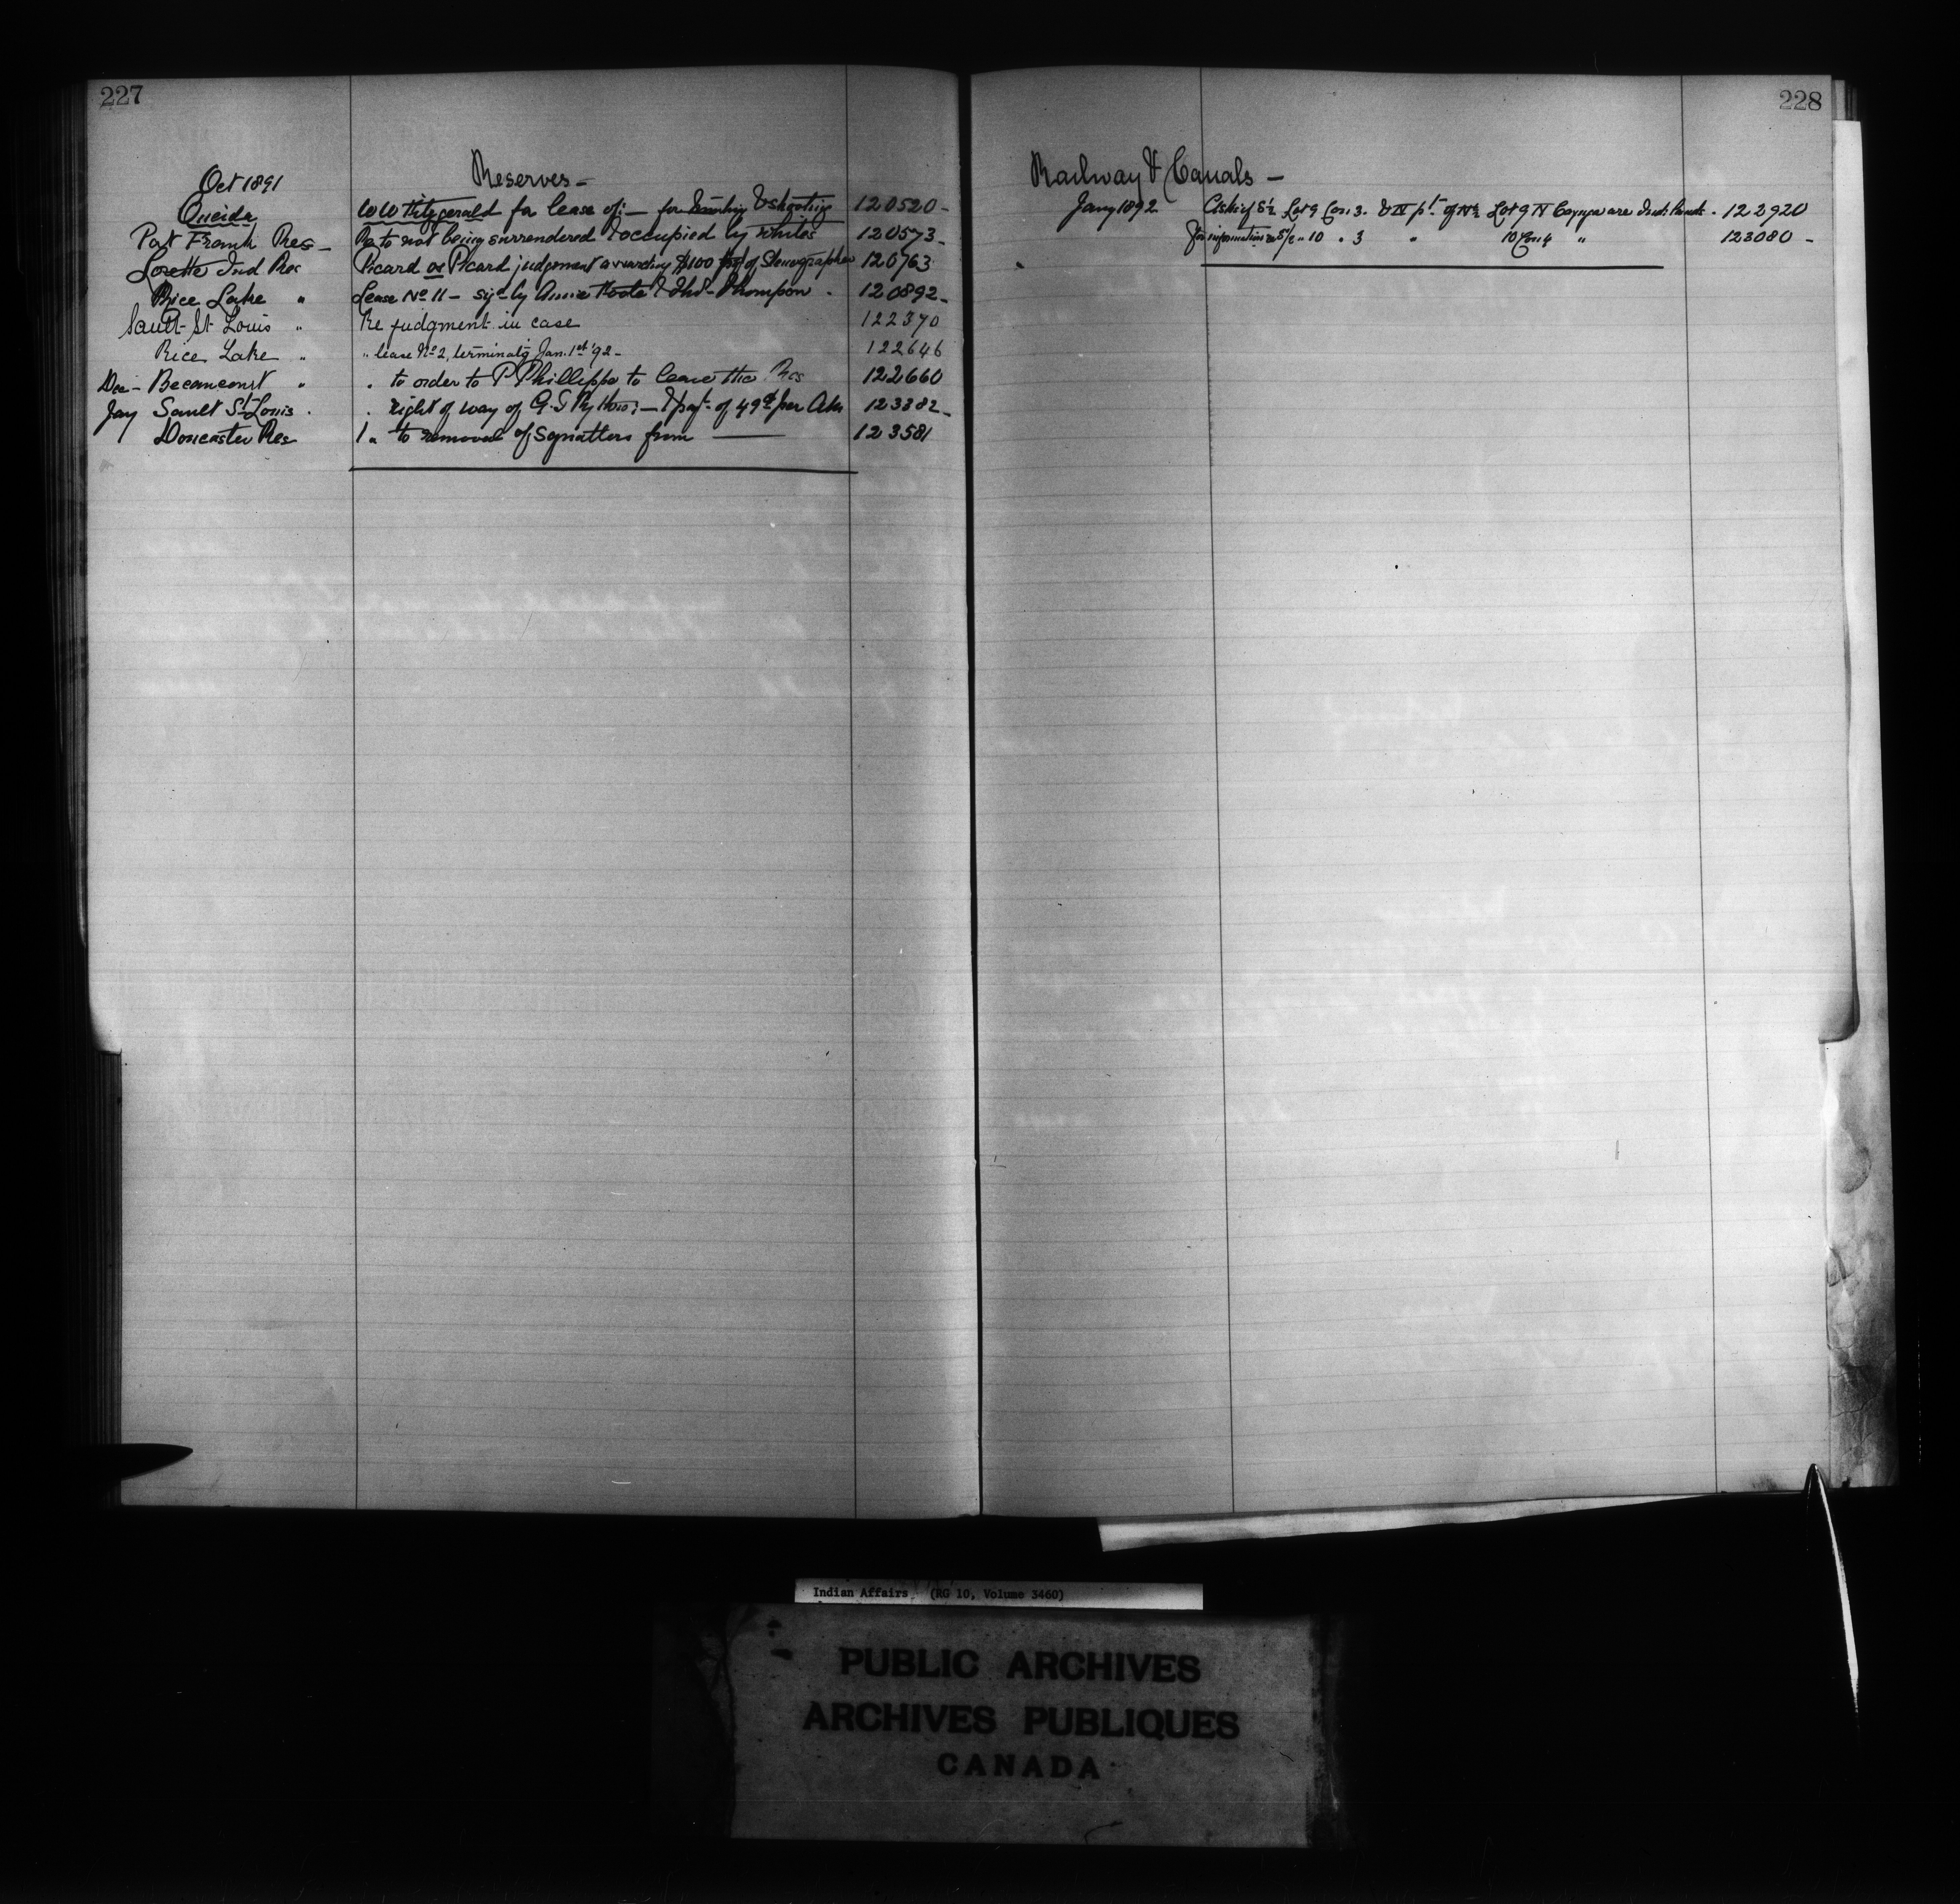 227
Oct 1891
Reserves –
Oneida W W Fitzgerald for lease of:— for hunting & shooting 120520 –
Port Frank Res – Re to not being surrendered & occupied by whites 120573 –
Lorette Ind Res Picard vs Picard judgement awarding $100 of Stenographer 120763
Rice Lake " Lease No 11 – sigd by Annie & Thos Thompson 120892 –
Sault St Louis " Re judgment in case 122370
Rice Lake " " lease No 2, terminatg Jan. 1st '92 – 122646
Dec – Becancourt " " to order to P Phillippe to leave the Res 122660
Jay Sault St Louis " " right of way of G. T Ry — & payt of 49 per 123382 –
Doncaster Res " to removal of Squatters from —— 123581
228
Railway & Canals –
Jany 1892 Askig if S ½ Lot 9 Con. 3. & N pt of N ½ Lot 9 N Cayuga are Ind. Lands . 122920
for information re S/2 " 10 " 3 " 10 Con 4 " 123080 –
Indian Affairs. (RG 10, Volume 3460)
PUBLIC ARCHIVES
ARCHIVES PUBLIQUES
CANADA